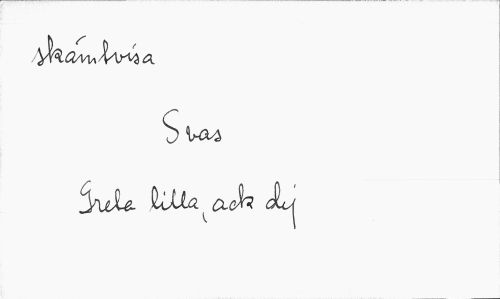 skämtvisa
Svas
Greta lilla, ack dej